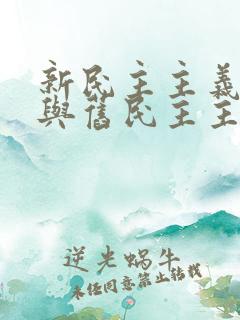 新民主主義
與舊民主主
逆光蝸牛
未经同意禁止转载